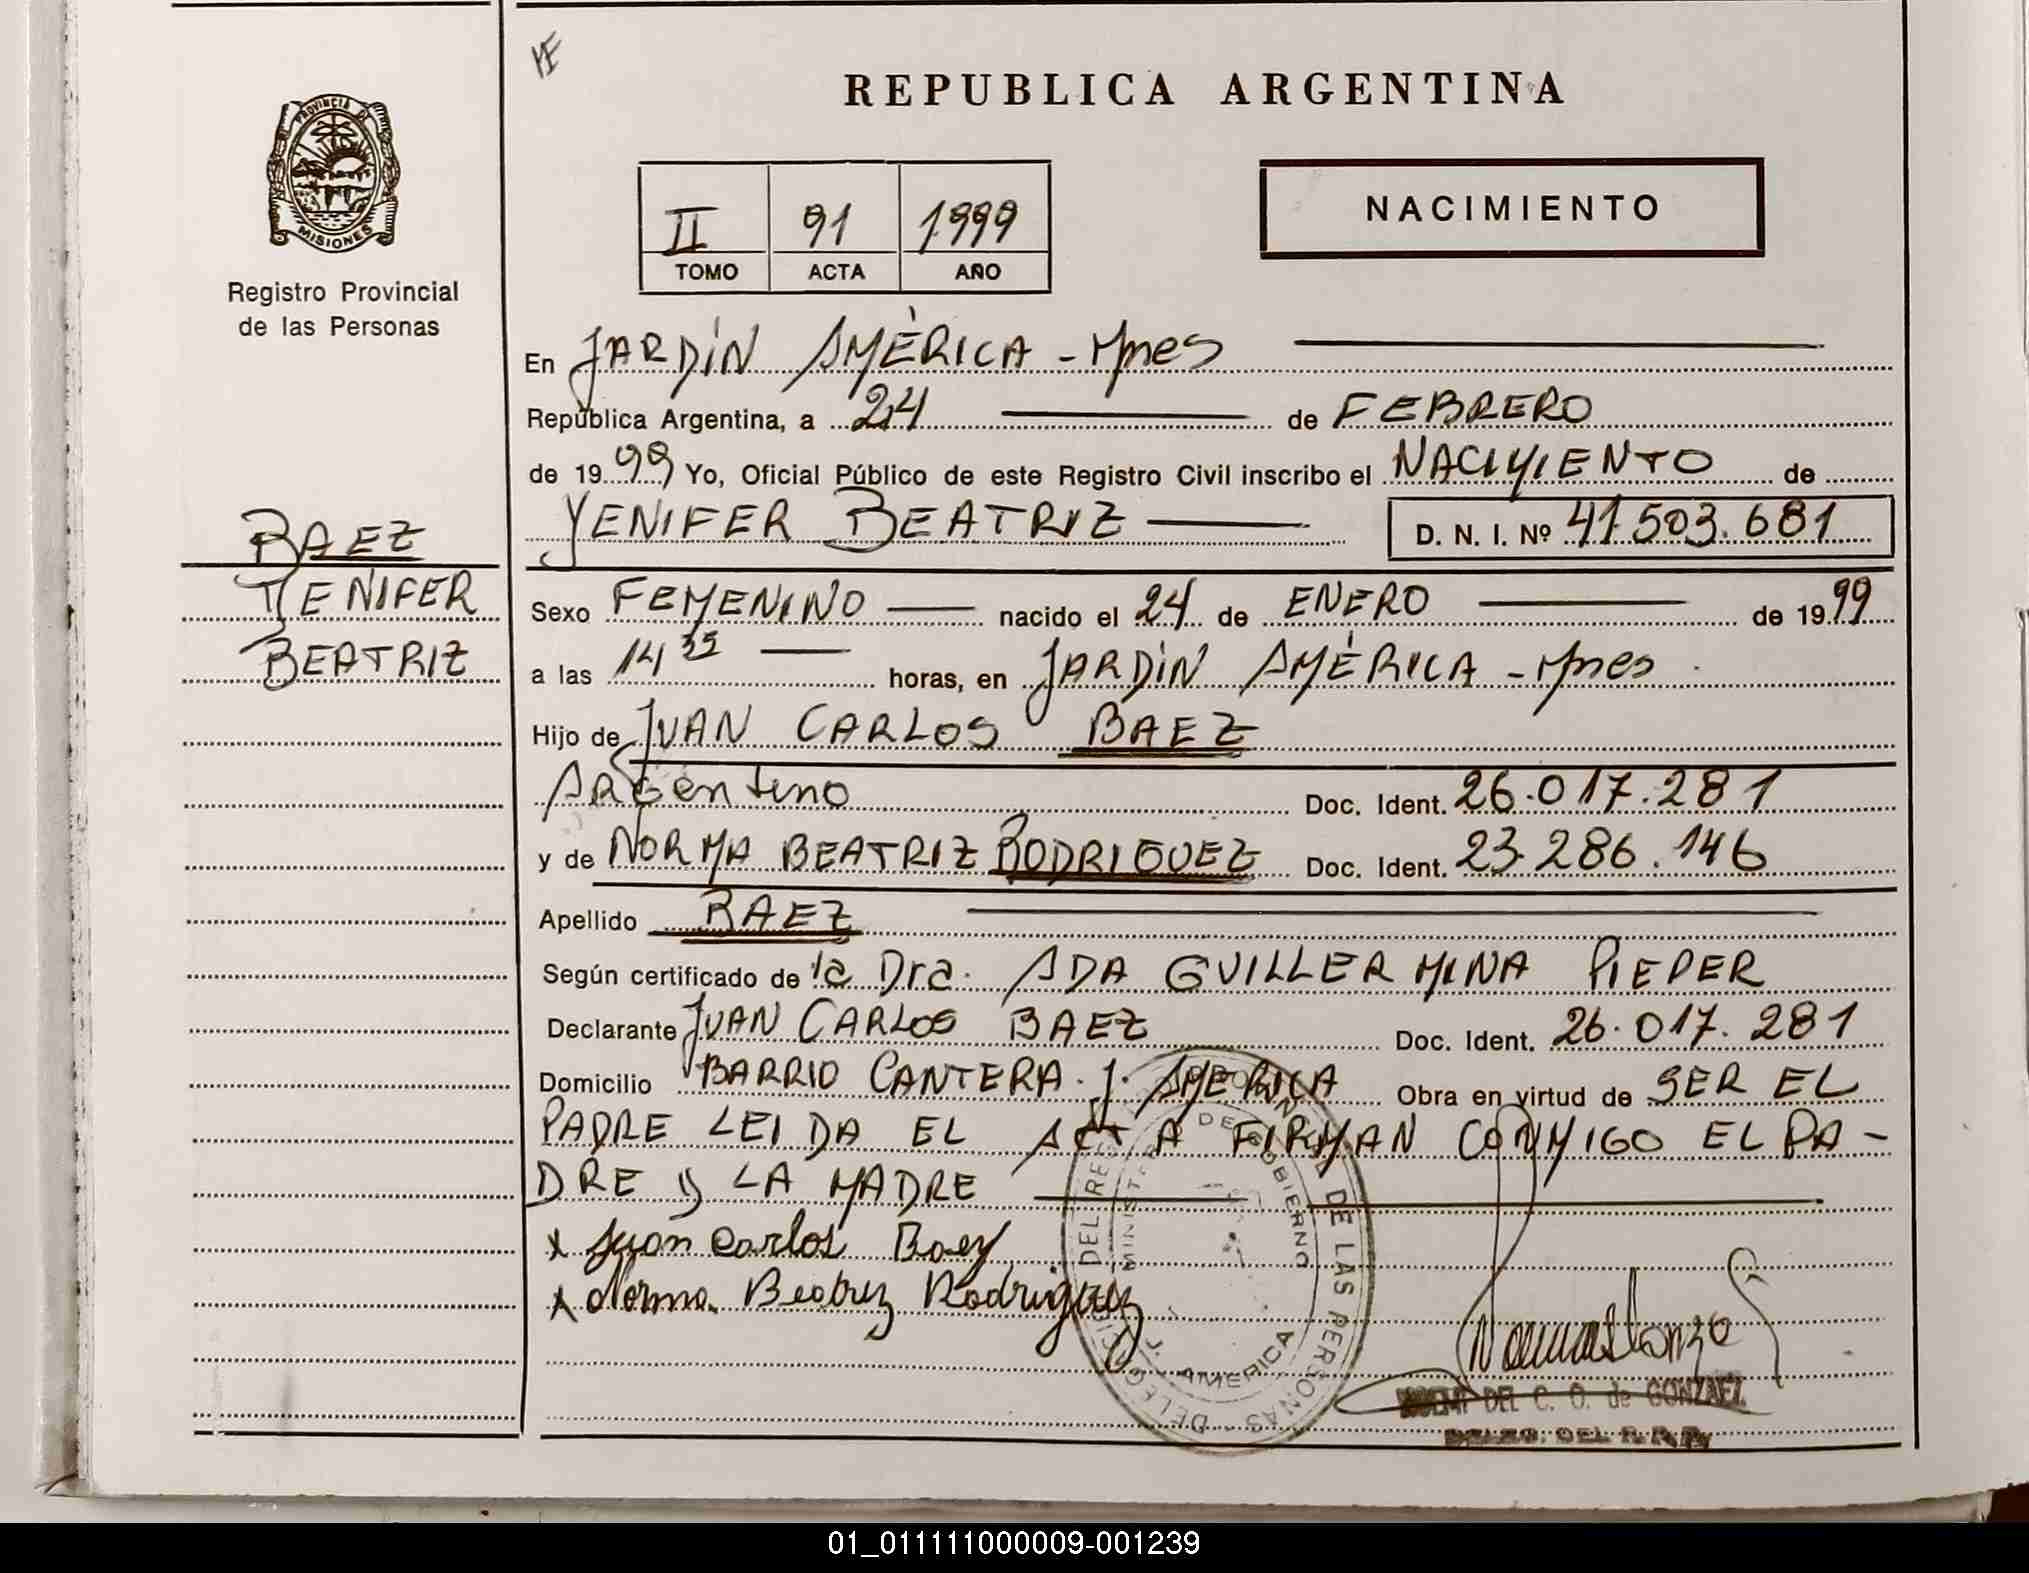 MF
REPUBLICA ARGENTINA
PROVINCIA DE
MISIONES
Registro Provincial
de las Personas
II 91 1999
TOMO ACTA AÑO
NACIMIENTO
En JARDÍN AMÉRICA - Mnes
República Argentina, a 24 de FEBRERO
de 1999 Yo, Oficial Público de este Registro Civil inscribo el NACIMIENTO de
YENIFER BEATRIZ D. N. I. Nº 41.503.681
BAEZ
YENIFER
BEATRIZ
Sexo FEMENINO nacido el 24 de ENERO de 1999
a las 14 35 horas, en JARDÍN AMÉRICA - Mnes.
Hijo de JUAN CARLOS BAEZ
Argentino Doc. Ident. 26.017.281
y de NORMA BEATRIZ RODRIGUEZ Doc. Ident. 23.286.146
Apellido BAEZ
Según certificado de la Dra. ADA GUILLERMINA PIEPER
Declarante JUAN CARLOS BAEZ Doc. Ident. 26.017.281
Domicilio BARRIO CANTERA. J. AMERICA Obra en virtud de SER EL
PADRE LEIDA EL ACTA FIRMAN CONMIGO EL PA-
DRE Y LA MADRE
x Juan Carlos Baez
x Norma Beatriz Rodriguez
DEL C. O. de GONZAEZ
DELEG. DEL R.P.P.
DELEGACION DEL REGISTRO PROVINCIAL DE LAS PERSONAS
MINISTERIO DE GOBIERNO
J. AMERICA
01_011111000009-001239